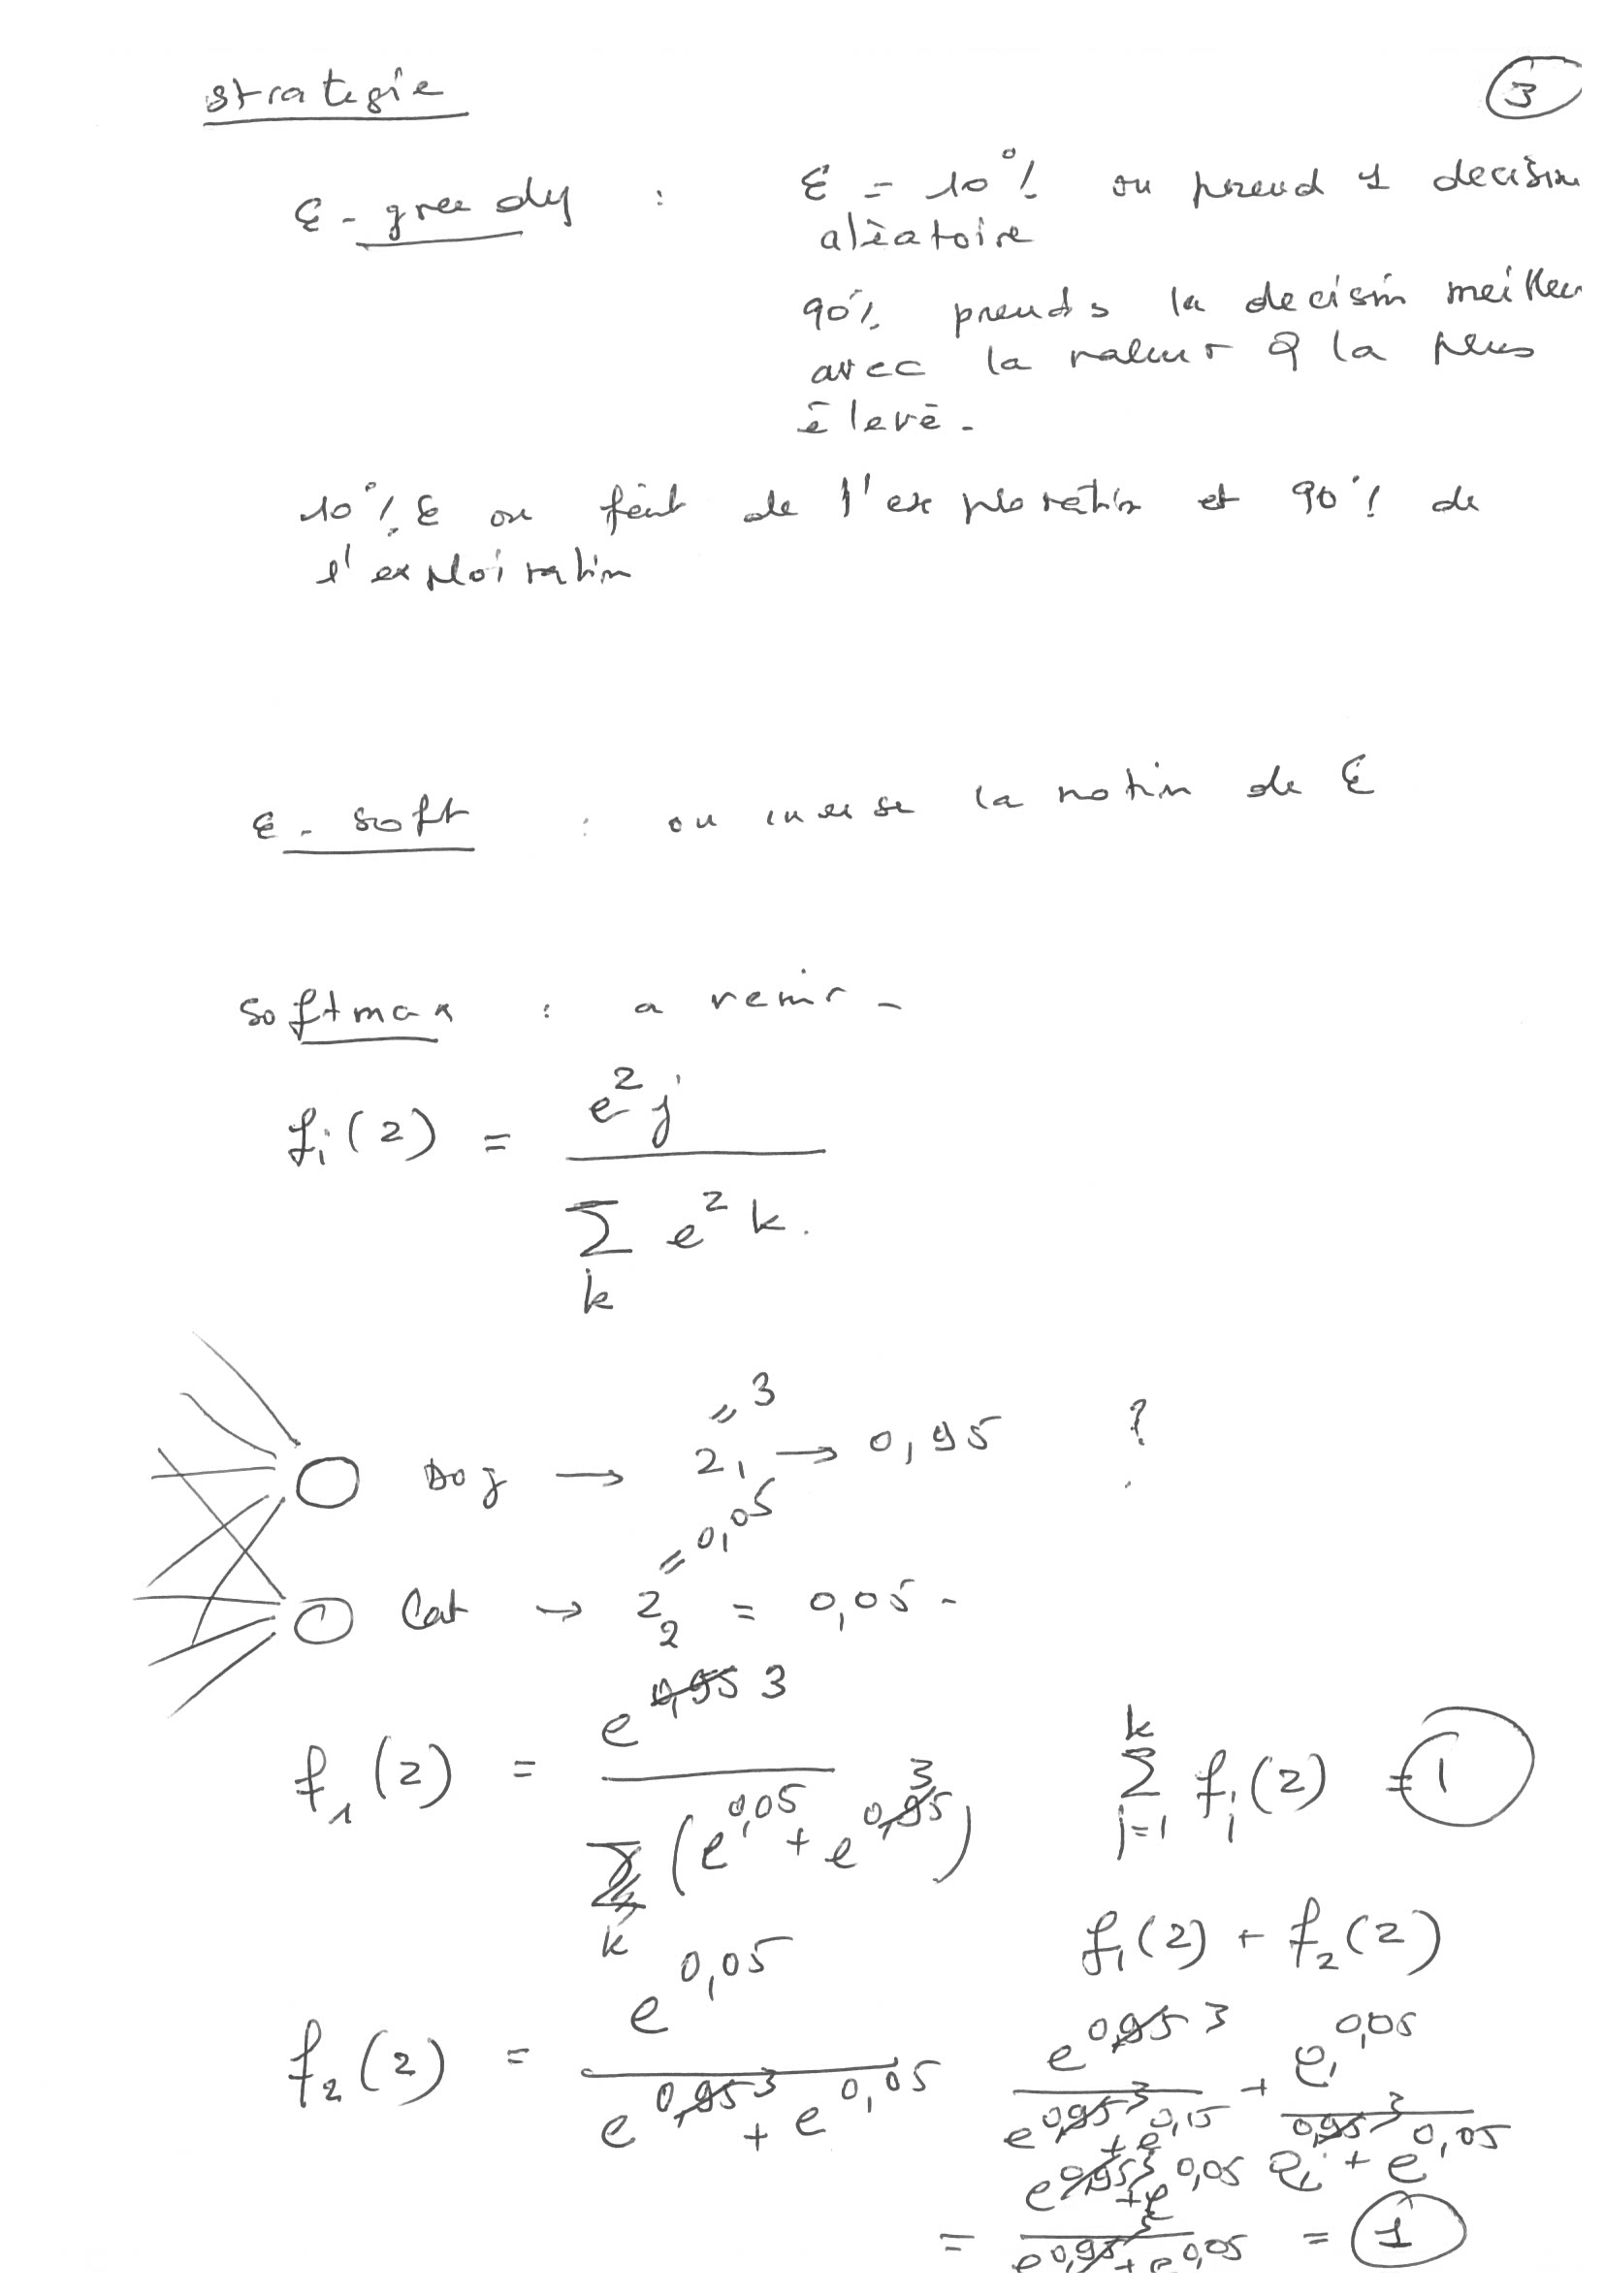 strategie
3
ε-greedy : ε = 10% on prend 1 decision
aléatoire
90% prends la decision meilleu
avec la valeur Q la plus
élevé.
10% ε on fait de l'exploration et 90% de
l'exploiration
ε-soft : on inverse la notion de ε
softmax : a venir -
fⱼ(z) = e^zj / Σ_k e^zk.
= 3
Dog → z₁ → 0,95 ?
= 0,05
Cat → z₂ = 0,05 -
f₁(z) = e^3 / (e^0,05 + e^3)
k
Σ fⱼ(z) = 1
j=1
f₁(z) + f₂(z)
f₂(z) = e^0,05 / e^3 + e^0,05
e^3 / e^3 + e^0,05 + e^0,05 / e^3 + e^0,05
= e^3 + e^0,05 / e^3 + e^0,05 = 1